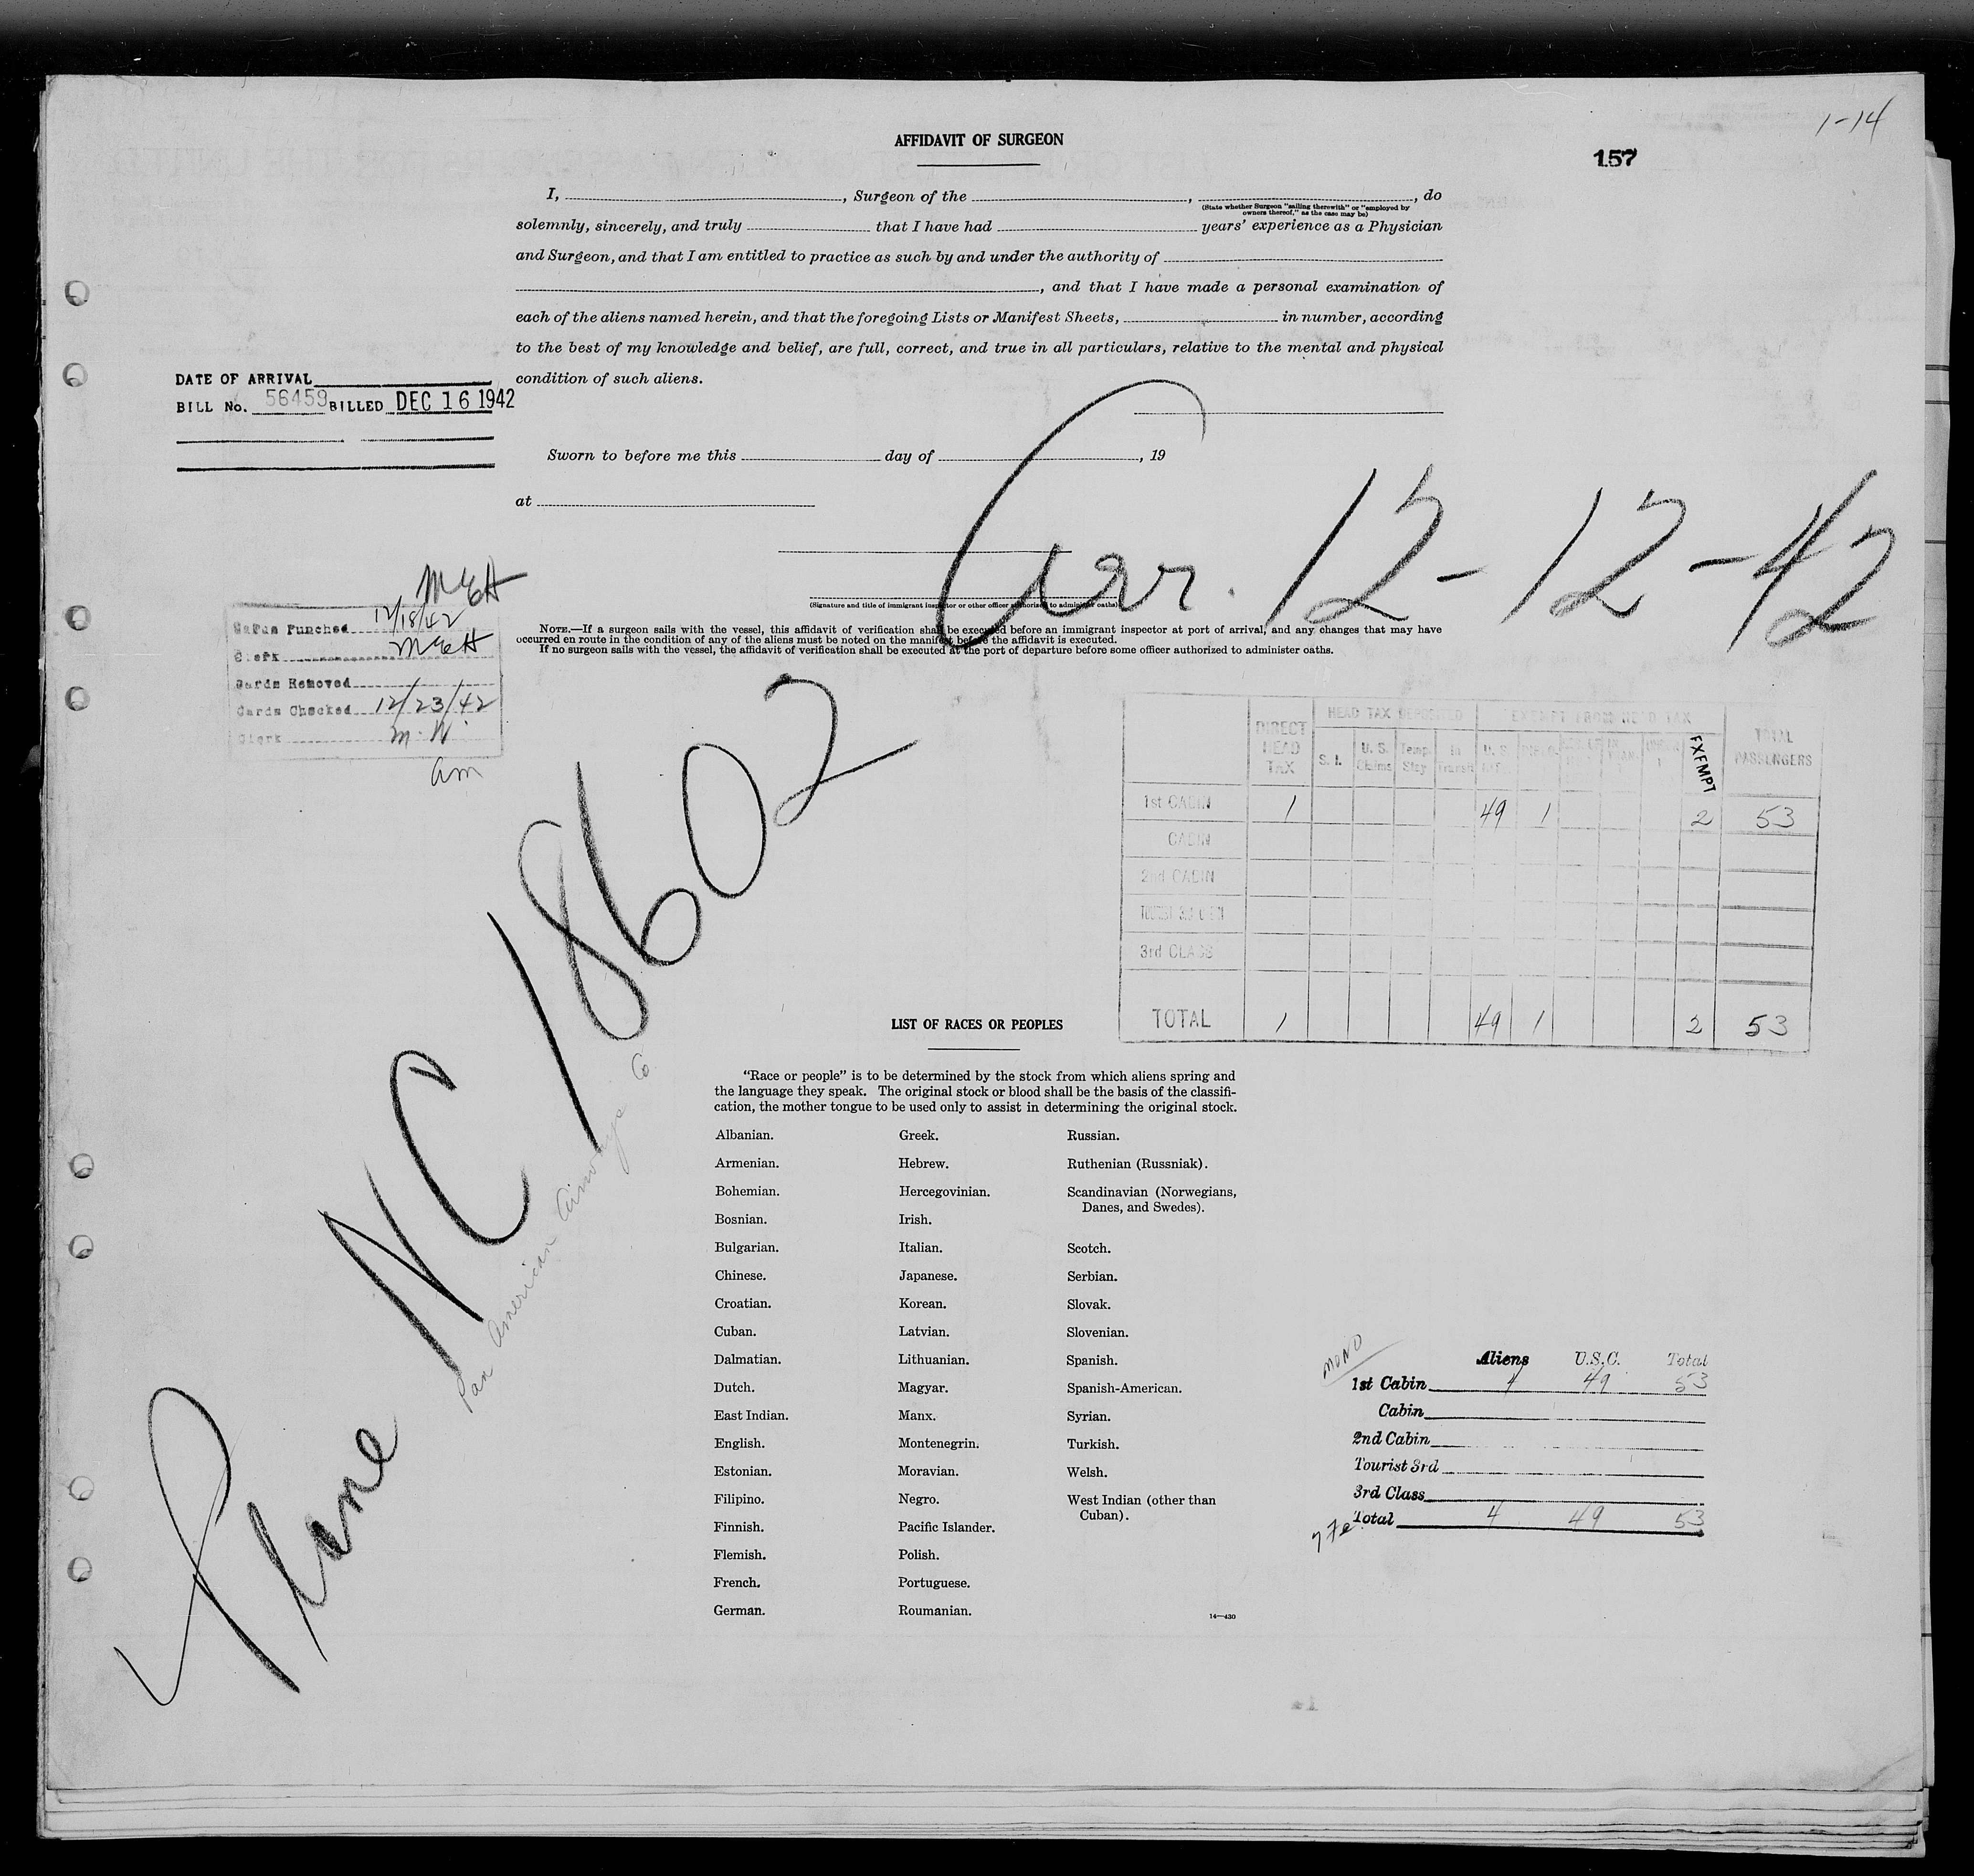 1-14
AFFIDAVIT OF SURGEON
157
I, , Surgeon of the , , do
(State whether Surgeon "sailing therewith" or "employed by
owners thereof," as the case may be)
solemnly, sincerely, and truly that I have had years' experience as a Physician
and Surgeon, and that I am entitled to practice as such by and under the authority of
, and that I have made a personal examination of
each of the aliens named herein, and that the foregoing Lists or Manifest Sheets, in number, according
to the best of my knowledge and belief, are full, correct, and true in all particulars, relative to the mental and physical
condition of such aliens.
DATE OF ARRIVAL
BILL No. 56459 BILLED DEC 16 1942
Sworn to before me this day of , 19
at
Arr. 12-12-42
(Signature and title of immigrant inspector or other officer authorized to administer oaths)
NOTE.—If a surgeon sails with the vessel, this affidavit of verification shall be executed before an immigrant inspector at port of arrival, and any changes that may have
occurred en route in the condition of any of the aliens must be noted on the manifest before the affidavit is executed.
If no surgeon sails with the vessel, the affidavit of verification shall be executed at the port of departure before some officer authorized to administer oaths.
MEH
Cards Punched 12/18/42
Clerk MEH
Cards Removed
Cards Checked 12/23/42
Clerk M.W.
am
Plane NC 18602
Pan American Airways Co.
DIRECT HEAD TAX
HEAD TAX DEPOSITED
EXEMPT FROM HEAD TAX
TOTAL PASSENGERS
S. I.
U. S. Claims
Temp. Stay
In Transit
EXEMPT
1st CABIN 1 49 1 2 53
CABIN
2nd CABIN
3rd CLASS
TOTAL 1 49 1 2 53
LIST OF RACES OR PEOPLES
"Race or people" is to be determined by the stock from which aliens spring and
the language they speak. The original stock or blood shall be the basis of the classifi-
cation, the mother tongue to be used only to assist in determining the original stock.
Albanian. Greek. Russian.
Armenian. Hebrew. Ruthenian (Russniak).
Bohemian. Hercegovinian. Scandinavian (Norwegians,
Danes, and Swedes).
Bosnian. Irish.
Bulgarian. Italian. Scotch.
Chinese. Japanese. Serbian.
Croatian. Korean. Slovak.
Cuban. Latvian. Slovenian.
Dalmatian. Lithuanian. Spanish.
Dutch. Magyar. Spanish-American.
East Indian. Manx. Syrian.
English. Montenegrin. Turkish.
Estonian. Moravian. Welsh.
Filipino. Negro. West Indian (other than
Cuban).
Finnish. Pacific Islander.
Flemish. Polish.
French. Portuguese.
German. Roumanian.
14—430
MONO
Aliens U.S.C. Total
1st Cabin 4 49 53
Cabin
2nd Cabin
Tourist 3rd
3rd Class
Total 4 49 53